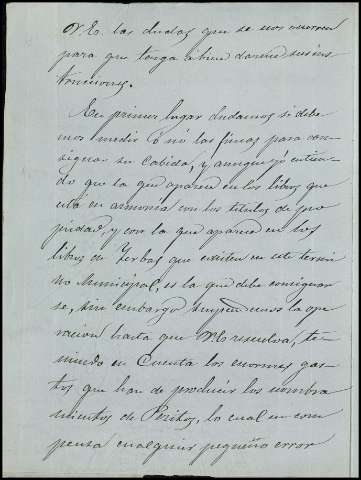 V.E. las dudas que se nos ocurren
para que tenga á bien darnos sus ins
trucciones.
En primer lugar dudamos si debe
mos medir ó nó las fincas para con
signar su cabida, y aunque yó entien
do que la que aparece en los libros que
está en armonía con los titulos de pro
piedad, y con la que aparece en los
libros de Yerbas que existen en este termi
no Municipal, es la que debe consignar
se, sin embargo suspendemos la ope
racion hasta que V.E. resuelva, te
niendo en Cuenta los enormes gas
tos que han de producir los nombra
mientos de Peritos, lo cual en com
pensa cualquier pequeño error